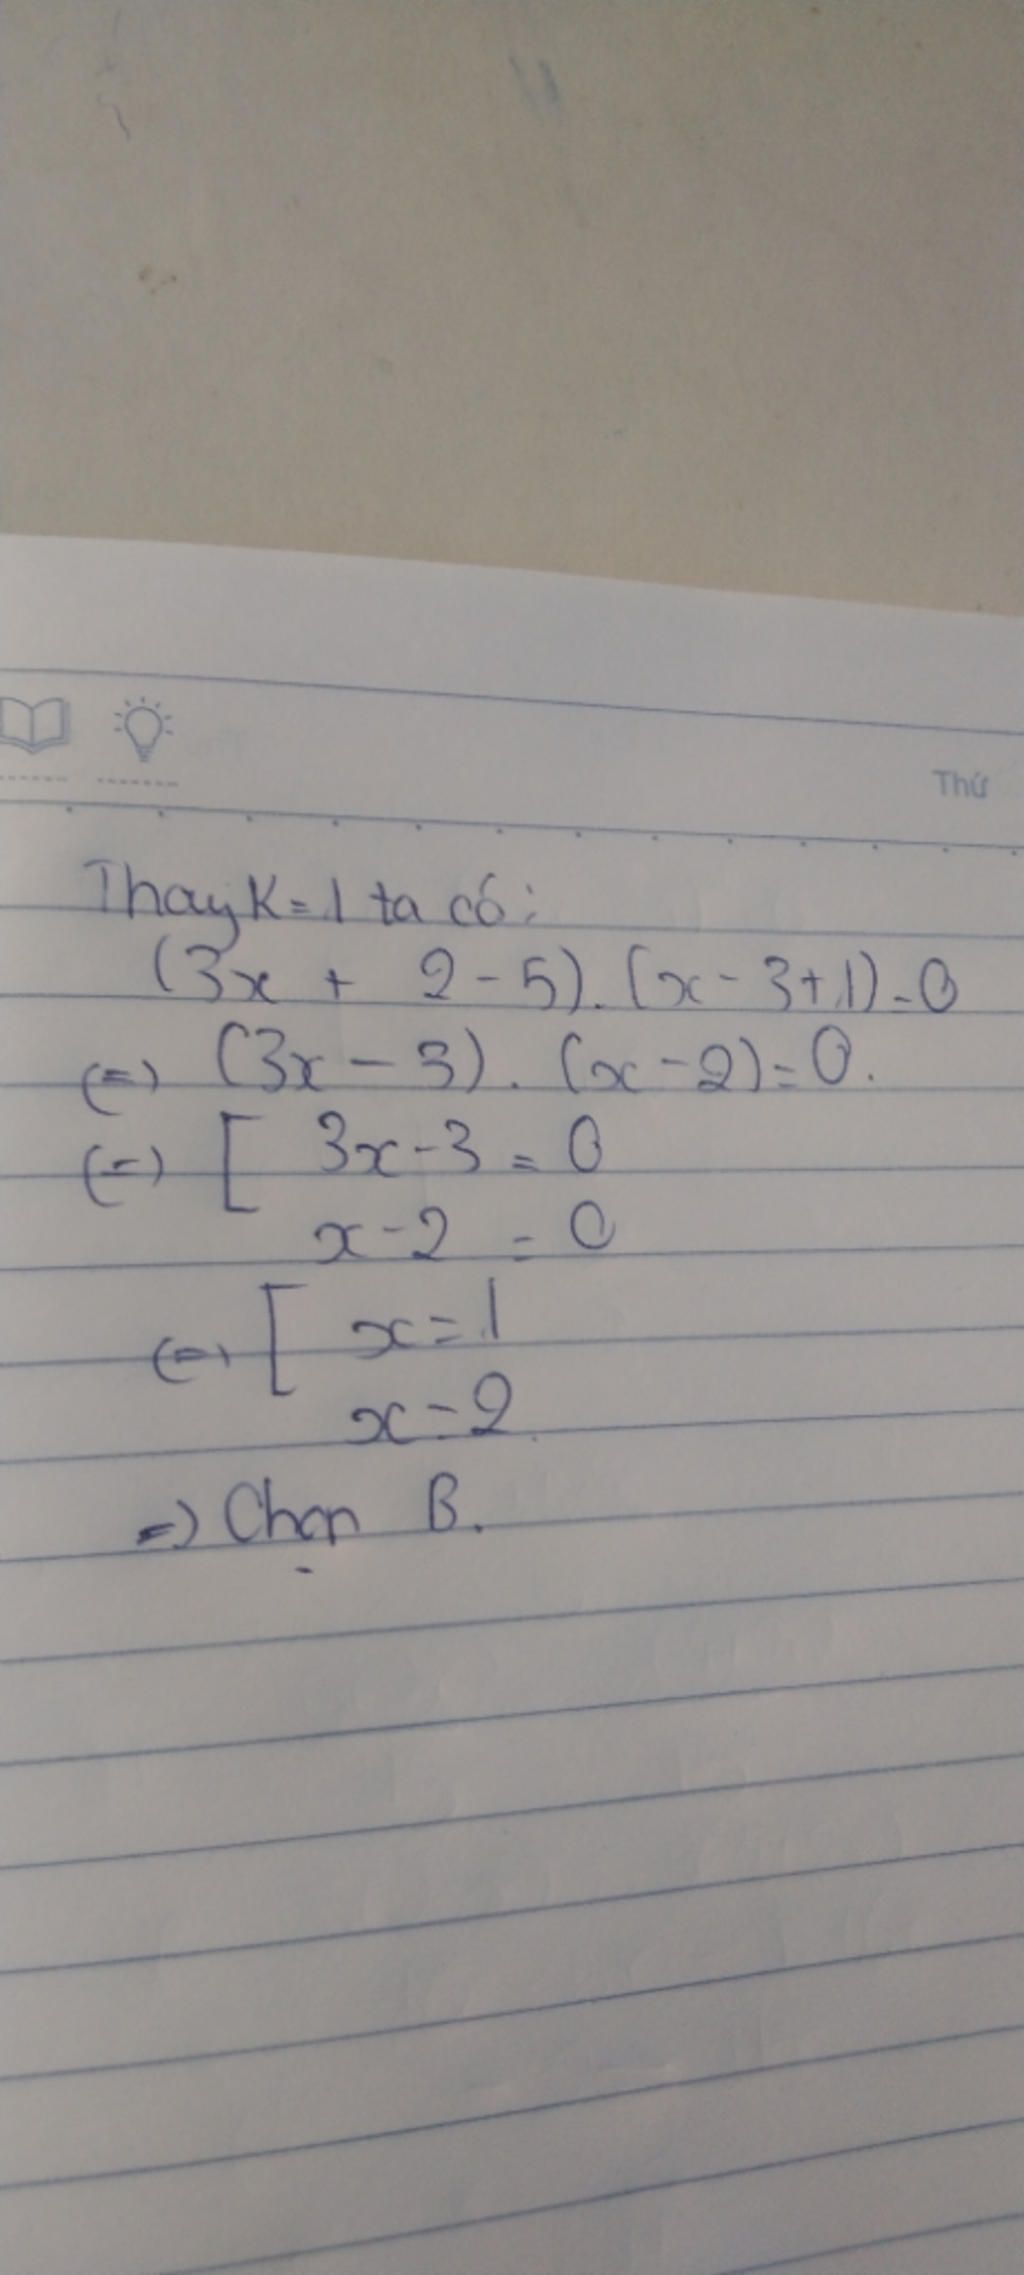 Thứ
Thay K=1 ta có:
(3x + 2-5).(x-3+1)=0
(=) (3x-3).(x-2)=0.
(=) [ 3x-3=0
x-2=0
(=) [ x=1
x=2.
=) Chọn B.